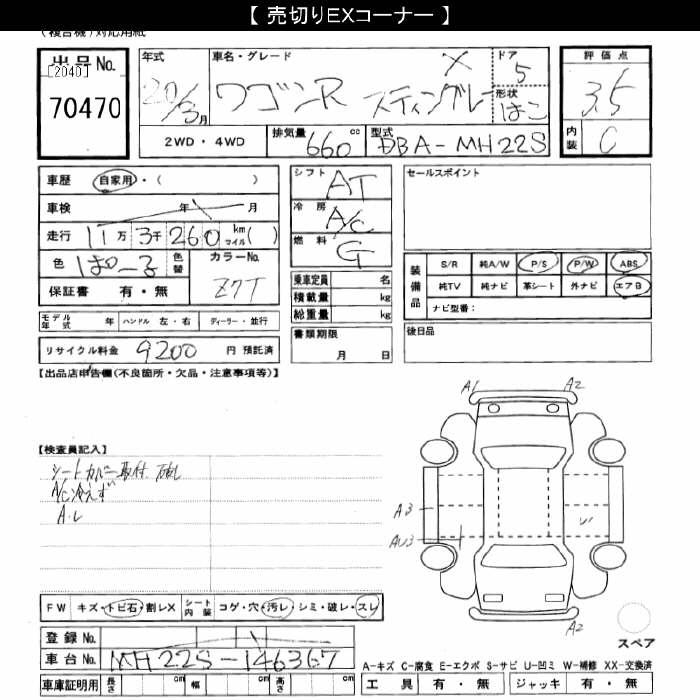 【 売切りEXコーナー 】
(複合機)対応用紙
出品No.
[2040]
70470
年式
20/3月
車名・グレード
ワゴンR スティングレー X
ドア 5
形状 はこ
評価点
3.5
内装 C
2WD・4WD
排気量 660 cc
型式 DBA-MH22S
車歴 自家用・( )
車検 年 月
走行 11万 3千 260 km マイル( )
色 ぱーる
色替
カラーNo. Z7T
保証書 有・無
シフト AT
冷房 A/C
燃料 G
乗車定員 名
積載量 kg
総重量 kg
セールスポイント
装備品
S/R 純A/W P/S P/W ABS
純TV 純ナビ 革シート 外ナビ エアB
ナビ型番：
モデル年式 年 ハンドル 左・右 ディーラー・並行
書類期限
月 日
後日品
リサイクル料金 9200 円 預託済
【出品店申告欄(不良箇所・欠品・注意事項等)】
【検査員記入】
シートカバー取付
A/C冷えず
A.U
A1 A2
A3
AU3
A2
FW キズ・トビ石・割レX シート内装 コゲ・穴・汚レ・シミ・破レ・スレ
スペア
登録No.
車台No. MH22S-146367
A-キズ C-腐食 E-エクボ S-サビ U-凹ミ W-補修 XX-交換済
車庫証明用 長さ cm 幅 cm 高さ cm
工具 有・無 ジャッキ 有・無